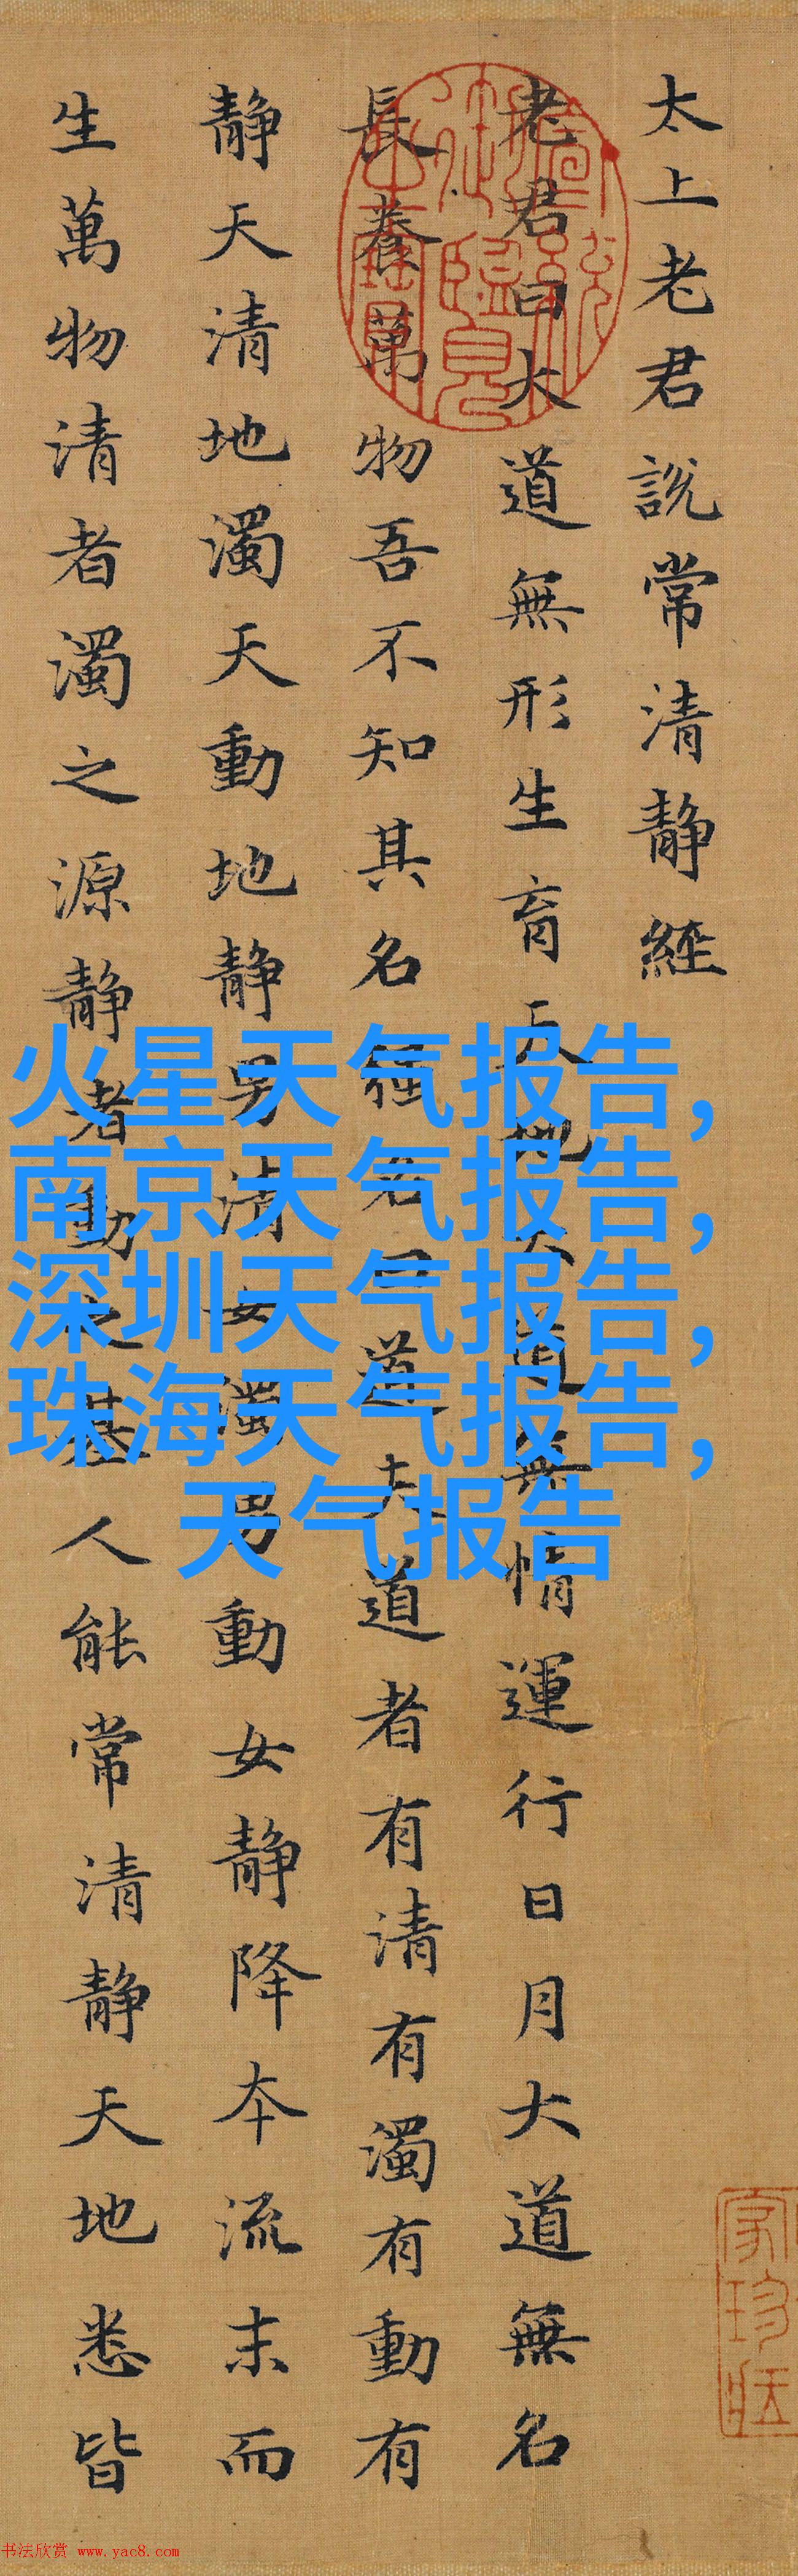 太上老君說常清靜經
老君曰大道無形生育天地大道無情運行日月大道無名
長養萬物吾不知其名強名曰道夫道者有清有濁有動有
靜天清地濁天動地靜男清女濁男動女靜降本流末而
生萬物清者濁之源靜者動之基人能常清靜天地悉皆
火星天气报告,
南京天气报告,
深圳天气报告,
珠海天气报告,
天气报告
书法欣赏 www.yac8.com